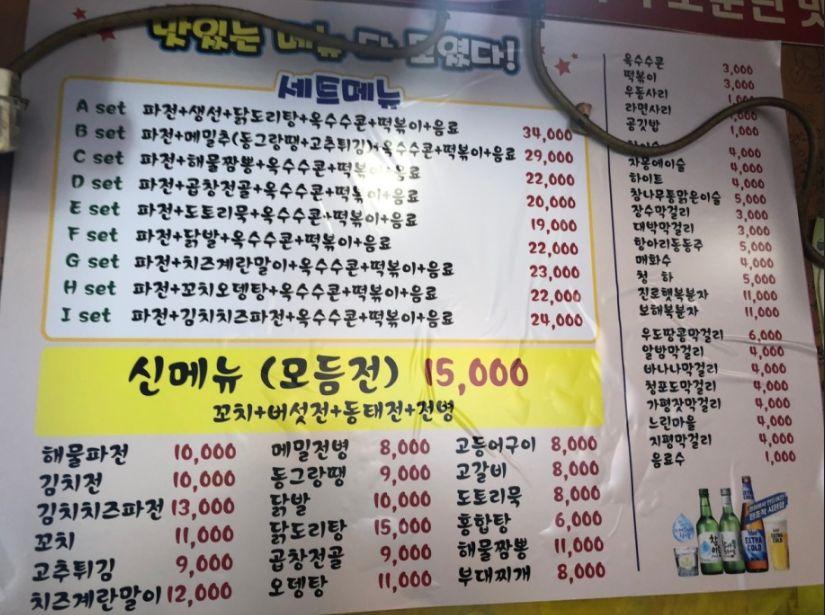 맛있는 메뉴 다 모였다!
세트메뉴
A set 파전+생선+닭도리탕+옥수수콘+떡볶이+음료 34,000
B set 파전+메밀추(동그랑땡+고추튀김)+옥수수콘+떡볶이+음료 29,000
C set 파전+해물짬뽕+옥수수콘+떡볶이+음료 22,000
D set 파전+곱창전골+옥수수콘+떡볶이+음료 20,000
E set 파전+도토리묵+옥수수콘+떡볶이+음료 19,000
F set 파전+닭발+옥수수콘+떡볶이+음료 22,000
G set 파전+치즈계란말이+옥수수콘+떡볶이+음료 23,000
H set 파전+꼬치오뎅탕+옥수수콘+떡볶이+음료 22,000
I set 파전+김치치즈파전+옥수수콘+떡볶이+음료 24,000
신메뉴 (모듬전) 15,000
꼬치+버섯전+동태전+전병
해물파전 10,000
김치전 10,000
김치치즈파전 13,000
꼬치 11,000
고추튀김 9,000
치즈계란말이 12,000
메밀전병 8,000
동그랑땡 9,000
닭발 10,000
닭도리탕 15,000
곱창전골 9,000
오뎅탕 11,000
고등어구이 8,000
고갈비 8,000
도토리묵 8,000
홍합탕 6,000
해물짬뽕 11,000
부대찌개 8,000
옥수수콘 3,000
떡볶이 3,000
우동사리 1,000
라면사리
공깃밥 1,000
4,000
자몽에이슬 4,000
하이트 4,000
참나무통맑은이슬 5,000
장수막걸리 3,000
대박막걸리 3,000
항아리동동주 5,000
매화수 4,000
청 하 5,000
진로햇복분자 11,000
보해복분자 11,000
우도땅콩막걸리 6,000
알밤막걸리 4,000
바나나막걸리 4,000
청포도막걸리 4,000
가평잣막걸리 4,000
느린마을 4,000
지평막걸리 4,000
음료수 1,000
EXTRA COLD